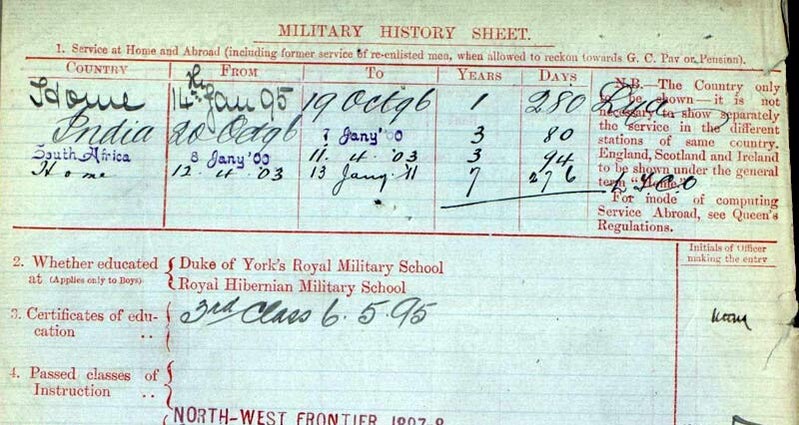 MILITARY HISTORY SHEET.
1. Service at Home and Abroad (including former service of re-enlisted men, when allowed to reckon towards G. C. Pay or Pension).
COUNTRY FROM TO YEARS DAYS
Home 14th Jan 95 19 Oct 96 1 280
India 20 Oct 96 7 Jany '00 3 80
South Africa 8 Jany '00 11. 4. '03 3 94
Home 12. 4. '03 13 Jany '11 7 276
N.B.—The Country only
to be shown—it is not
necessary to show separately
the service in the different
stations of same country.
England, Scotland and Ireland
to be shown under the general
term "Home."
For mode of computing
Service Abroad, see Queen's
Regulations.
Initials of Officer
making the entry
2. Whether educated
at (Applies only to Boys)
Duke of York's Royal Military School
Royal Hibernian Military School
3. Certificates of edu-
cation ..
3rd Class 6. 5. 95
4. Passed classes of
Instruction ..
NORTH-WEST FRONTIER 1897-8